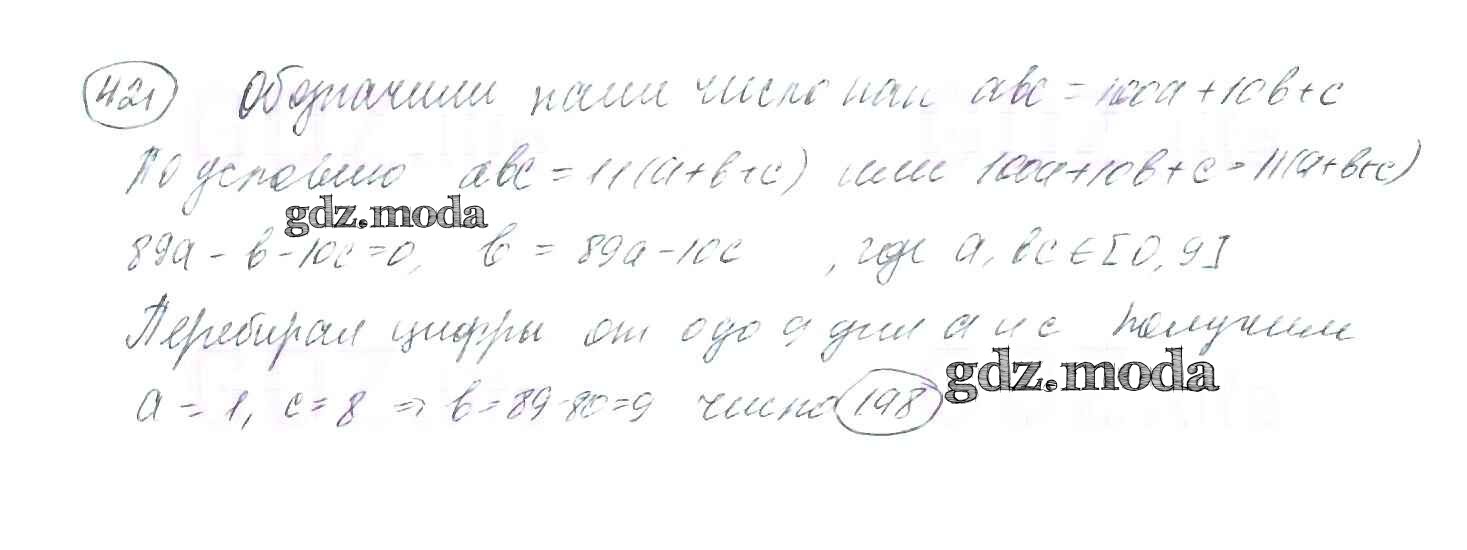 421 Обозначим наше число как abc = 100a + 10b + c
По условию abc = 11(a+b+c) или 100a+10b+c = 11(a+b+c)
gdz.moda
89a - b - 10c = 0, b = 89a - 10c , где a, b c ∈ [0, 9]
Перебирая цифры от 0 до 9 для a и c получим
gdz.moda
a = 1, c = 8 ⇒ b = 89-80 = 9 число 198